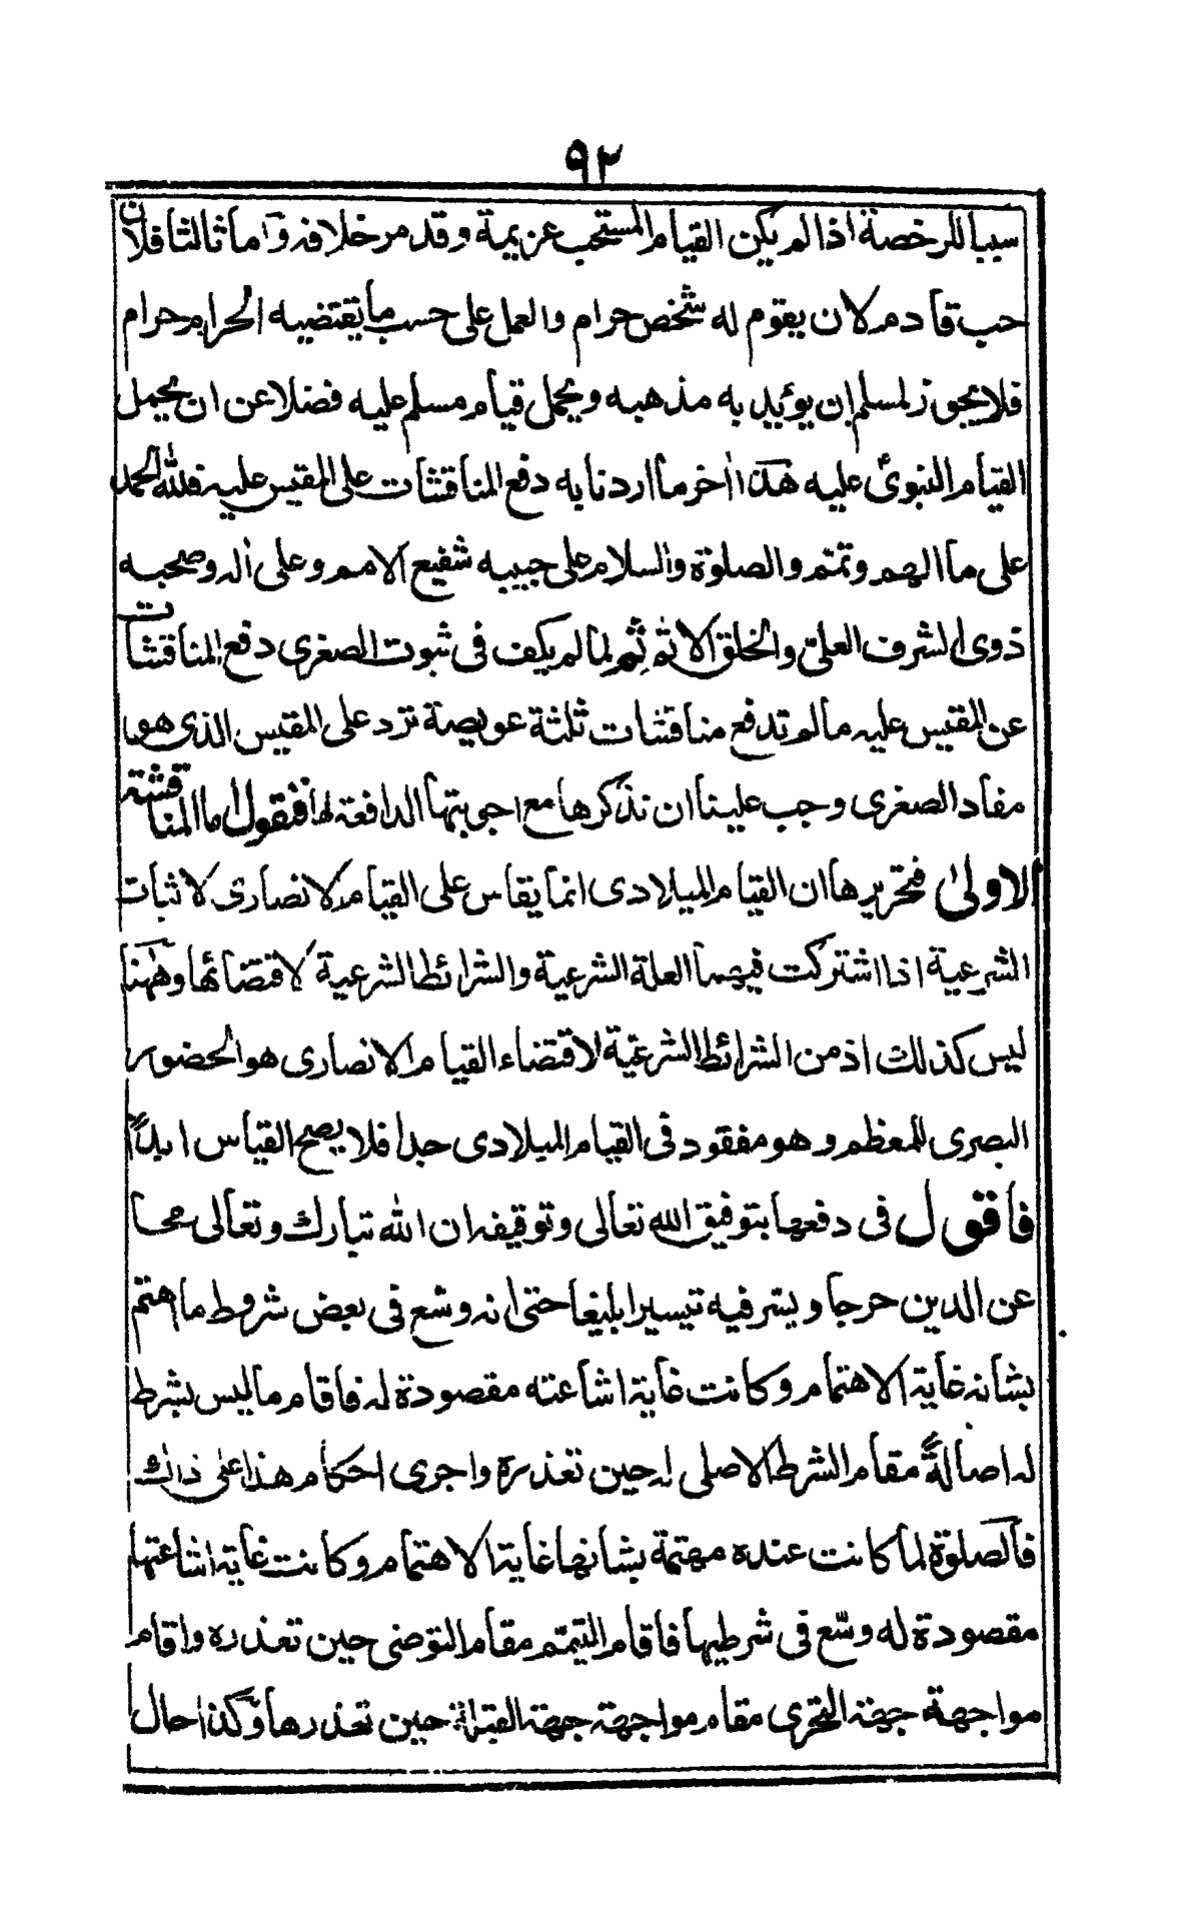 ٩٢
سببا للرخصة اذا لم يكن القيام المستحب عزيمة وقد مر خلافه وَاما ثالثا فلان
حب قادم لان يقوم له شخص حرام والعمل على حسب ما يقتضيه الحرام حرام
فلا يجوز لمسلم ان يوئيد به مذهبه ويحمل قيام مسلم عليه فضلا عن ان يحمل
القيام النبوي عليه هٓذا اٰخر ما اردنا به دفع المناقشات على المقيس عليه فلله الحمد
على ما الهم وتمم والصلوٰة والسلام على حبيبه شفيع الامم وعلى اٰله وصحبه
ذوى الشرف العلى والخلق الاتم ثم لما لم يكف فى ثبوت الصغرى دفع المناقشات
عن المقيس عليه ما لم تدفع مناقشات ثلثة عويصة ترد على المقيس الذى هو
مفاد الصغرى وجب علينا ان نذكرها مع اجوبتها الدافعة لها فنقول اما المناقشة
الاولىٰ فتحريرها ان القيام الميلادى انما يقاس على القيام الانصارى لاثبات
الشرعية اذا اشتركت فيهما العلة الشرعية والشرائط الشرعية لاقتضائها وهٰهنا
ليس كذلك اذ من الشرائط الشرعية لاقتضاء القيام الانصارى هو الحضور
البصرى للمعظم وهو مفقود فى القيام الميلادى جدا فلا يصح القياس ابداً
فاقول فى دفعها بتوفيق الله تعالى وتوقيفه ان الله تبارك وتعالى محا
عن الدين حرجا ويسر فيه تيسيرا بليغا حتى انه وسّع فى بعض شروط ما اهتم
بشانه غاية الاهتمام وكانت غاية اشاعته مقصودة له فاقام ما ليس بشرط
له اصالةً مقام الشرط الاصلى له حين تعذره واجرى احكام هذا على ذالك
فالصلوة لما كانت عنده مهتمة بشانها غاية الاهتمام وكانت غاية اشاعتها
مقصودة له وسّع فى شرطيها فاقام التيمم مقام التوضى حين تعذره واقام
مواجهة جهة التحرى مقام مواجهة جهة القبلة حين تعذرها وكذا حال